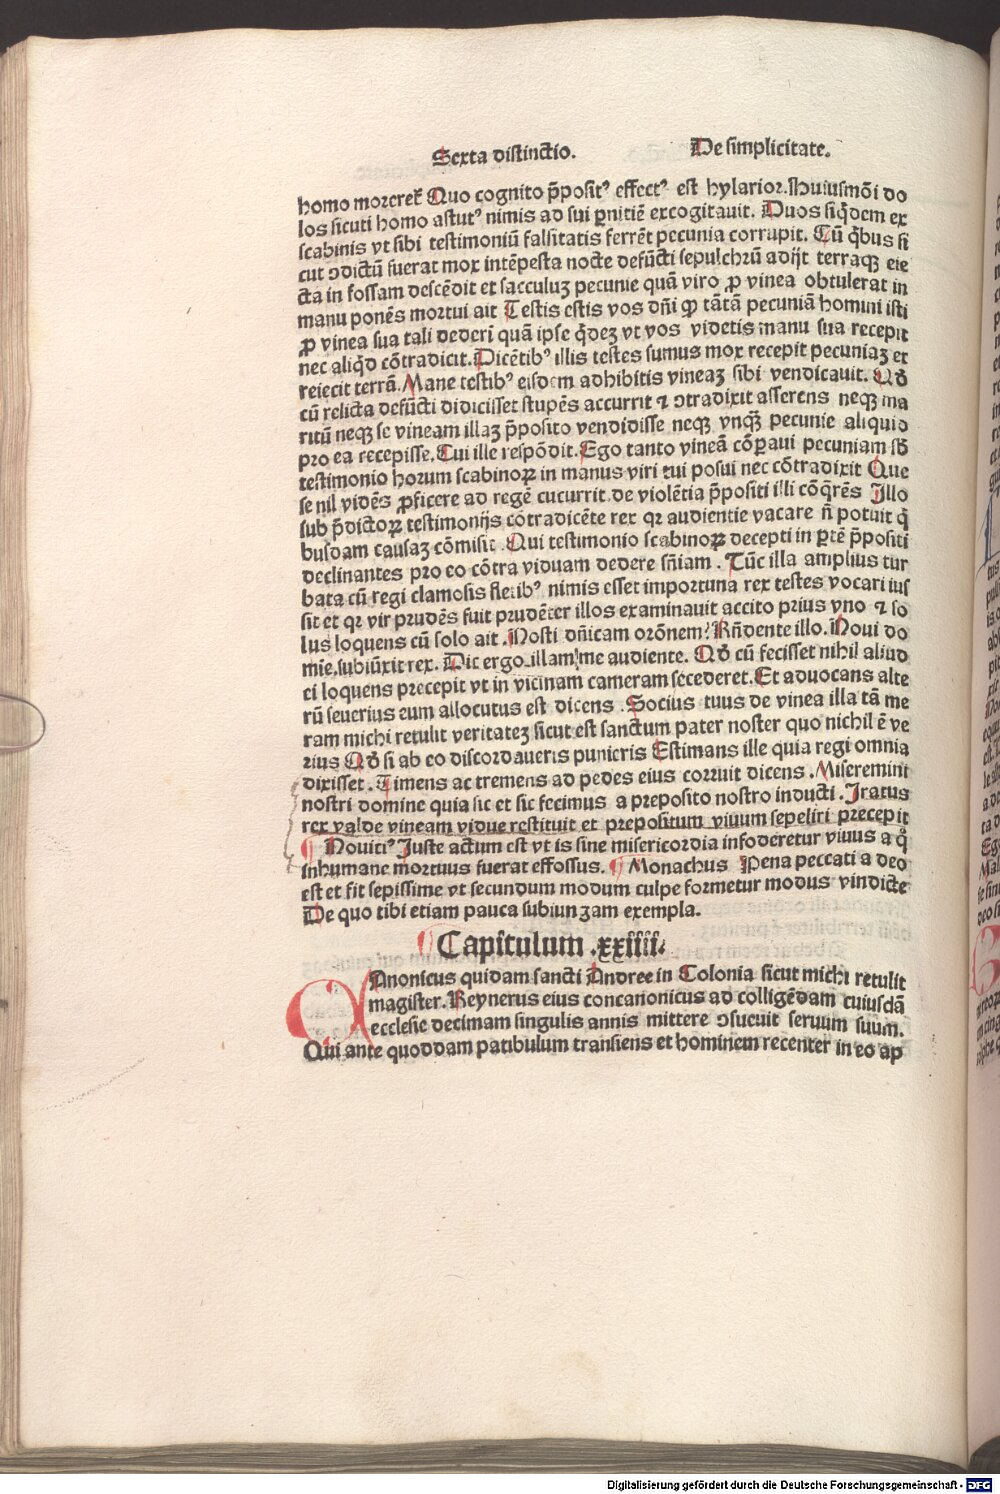 Sexta distinctio. De simplicitate.
homo moreret᷒ Quo cognito p̄posit⁹ effect⁹ est hylarior. Huiusmōi do
los sicuti homo astut⁹ nimis ad sui ꝑnitiē excogitauit. Duos siq̇dem ex
scabinis vt sibi testimoniū falsitatis ferrēt pecunia corrupit. Cū q̇bus si
cut ↄdictū fuerat mox intēpesta nocte defūcti sepulchrū adijt terraqꝫ eie
cta in fossam descēdit et sacculuꝫ pecunie quā viro ꝓ vinea obtulerat in
manu ponēs mortui ait Testis estis vos dn̄i ꝙ tātā pecuniā homini isti
ꝓ vinea sua tali dederī quā ipse q̇deꝫ vt vos videtis manu sua recepit
nec aliq̇d cōtradicit. Dicētib⁹ illis testes sumus mox recepit pecuniaꝫ et
reiecit terrā. Mane testib⁹ eisdem adhibitis vineaꝫ sibi vendicauit. Qd̄
cū relicta defūcti didicisset stupēs accurrit ⁊ ↄtradixit asserens neqꝫ ma
ritū neqꝫ se vineam illaꝫ p̄posito vendidisse neqꝫ vnqꝫ̄ pecunie aliquid
pro ea recepisse. Cui ille respōdit. Ego tanto vineā cōꝑaui pecuniam sb̄
testimonio horum scabinoꝝ in manus viri tui posui nec cōtradixit Que
se nil vidēs ꝓficere ad regē cucurrit. de violētia p̄positi illi cōq̄rēs Illo
sub p̄dictoꝝ testimonijs cōtradicēte rex qꝛ audientie vacare n̄ potuit q̇
busdam causaꝫ cōmisit. Qui testimonio scabinoꝝ decepti in ꝑtē p̄positi
declinantes pro eo cōtra viduam dedere sn̄iam. Tūc illa amplius tur
bata cū regi clamosis fletib⁹ nimis esset importuna rex testes vocari ius
sit et qꝛ vir prudēs fuit prudēter illos examinauit accito prius vno ⁊ so
lus loquens cū solo ait. Nosti dn̄icam orōnem? Rn̄dente illo. Noui do
mie. subiūxit rex. Dic ergo illam me audiente. Qd̄ cū fecisset nihil aliud
ei loquens precepit vt in vicinam cameram secederet. Et aduocans alte
rū seuerius eum allocutus est dicens. Socius tuus de vinea illa tā me
ram michi retulit veritateꝫ sicut est sanctum pater noster quo nichil ē ve
rius Qd̄ si ab eo discordaueris punieris Estimans ille quia regi omnia
dixisset. Timens ac tremens ad pedes eius corruit dicens. Miseremini
nostri domine quia sic et sic fecimus a preposito nostro inducti. Iratus
rex valde vineam vidue restituit et prepositum viuum sepeliri precepit
¶ Nouiti⁹ Iuste actum est vt is sine misericordia infoderetur viuus a qͦ
inhumane mortuus fuerat effossus. ¶ Monachus Pena peccati a deo
est et fit sepissime vt secundum modum culpe formetur modus vindicte
De quo tibi etiam pauca subiungam exempla.
¶ Capitulum .xxiiii.
CAnonicus quidam sancti Andree in Colonia sicut michi retulit
magister. Reynerus eius concanonicus ad colligēdam cuiusdā
ecclesie decimam singulis annis mittere ↄsueuit seruum suum.
Qui ante quoddam patibulum transiens et hominem recenter in eo ap
Digitalisierung gefördert durch die Deutsche Forschungsgemeinschaft - DFG